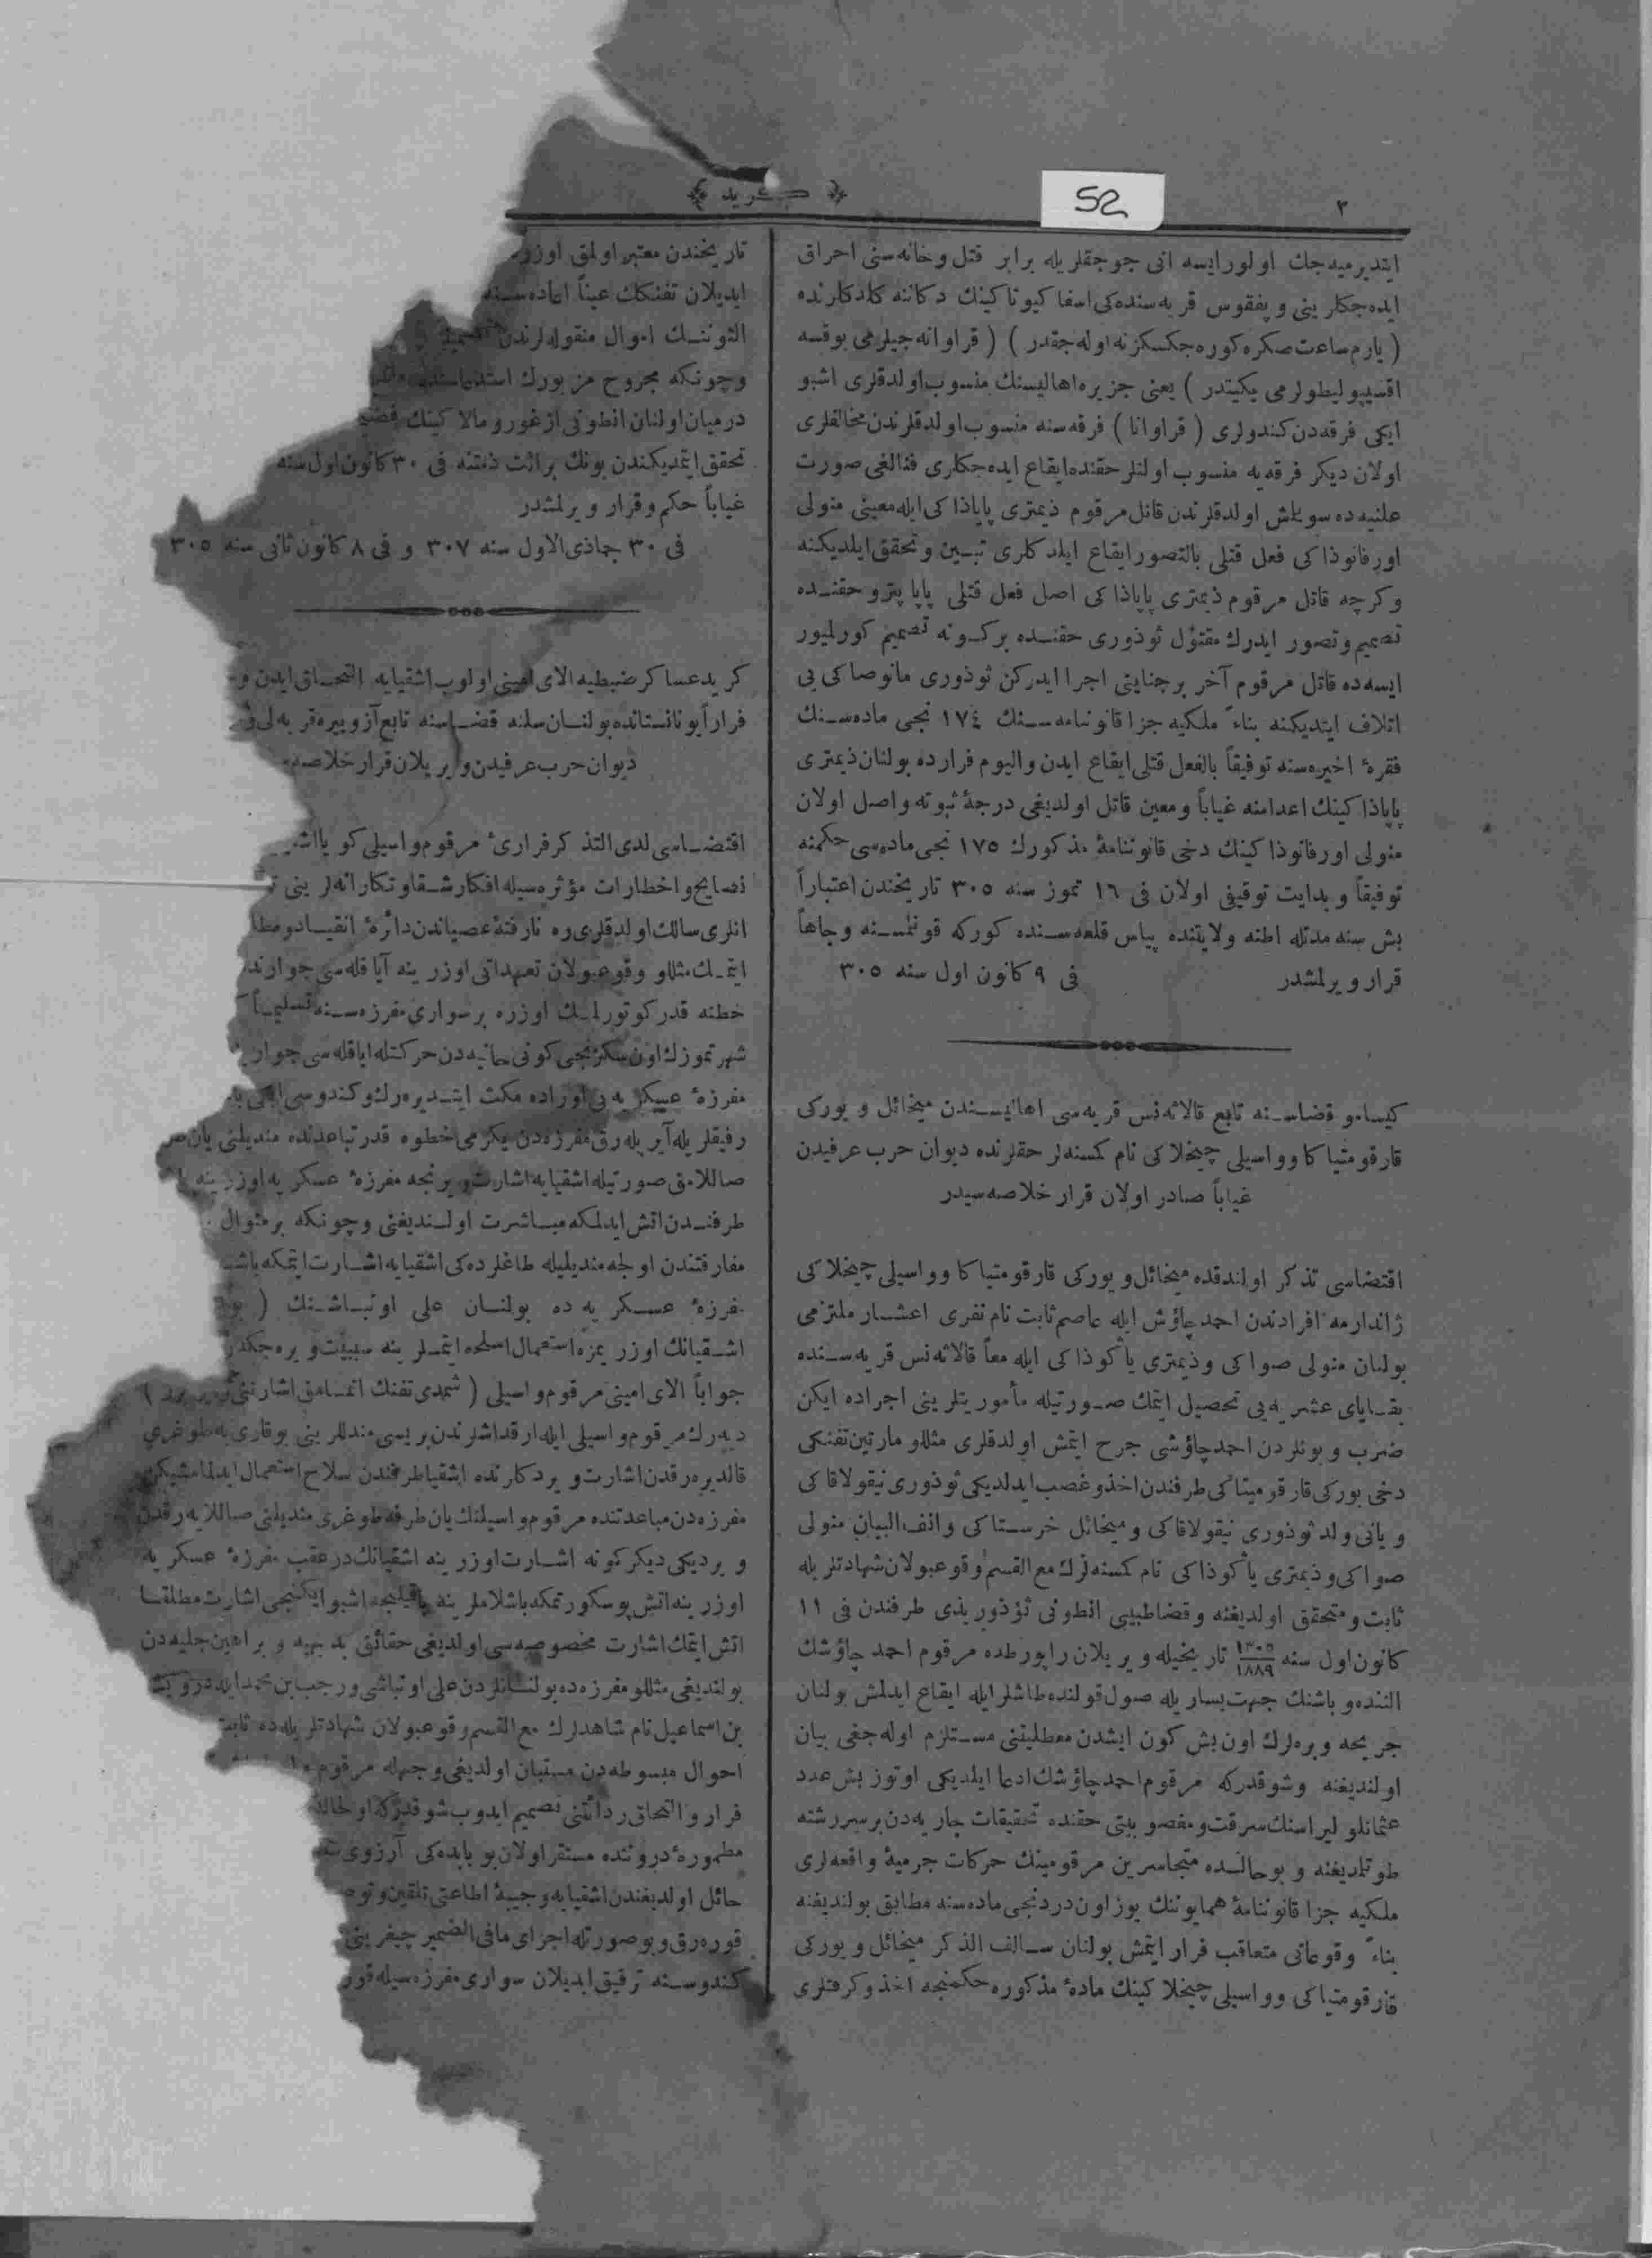 ٢
52
كريد
ايتديرميه‌جك اولور ايسه انى جوجقلريله برابر قتل وخانه‌سنى احراق
ايده‌جكلرينى و پفقوس قريه‌سنده‌كى اسفاكيوتاكينك دكاننه كلدكلرنده
( يارم ساعت صكره كوره‌جكسكز نه اوله‌جقدر ) ( قراوانه‌جيلرمى يوقسه
اقسيپوليطولرمى يكيتدر ) يعنى جزيره اهاليسنك منسوب اولدقلرى اشبو
ايكى فرقه‌دن كندولرى ( قراوانا ) فرقه‌سنه منسوب اولدقلرندن مخالفلرى
اولان ديكر فرقه‌يه منسوب اولنلر حقنده ايقاع ايده‌جكلرى فنالغى صورت
علنيه‌ده سويلمش اولدقلرندن قاتل مرقوم ذيمترى پاپاذاكى ايله معينى منولى
اورفانوذاكى فعل قتلى بالتصور ايقاع ايلدكلرى تبين وتحقق ايلديكنه
وكرچه قاتل مرقوم ذيمترى پاپاذاكى اصل فعل قتلى پاپا پترو حقنده
تصميم وتصور ايدرك مقتول ثوذورى حقنده بركونه تصميم كورلميور
ايسه‌ده قاتل مرقوم آخر برجنايتى اجرا ايدركن ثوذورى مانوصاكى يى
اتلاف ايتديكنه بناءً ملكيه جزا قانوننامه‌سنك ١٧٤ نجى ماده‌سنك
فقرهٔ اخيره‌سنه توفيقاً بالفعل قتلى ايقاع ايدن واليوم فرارده بولنان ذيمترى
پاپاذاكينك اعدامنه غياباً ومعين قاتل اولديغى درجهٔ ثبوته واصل اولان
منولى اورفانوذاكينك دخى قانوننامهٔ مذكورك ١٧٥ نجى ماده‌سى حكمنه
توفيقاً وبدايت توقيفى اولان فى ١٦ تموز سنه ٣٠٥ تاريخندن اعتباراً
بش سنه مدتله اطنه ولايتنده پياس قلعه‌سنده كوركه قونلمسنه وجاهاً
قرار ويرلمشدر فى ٩ كانون اول سنه ٣٠٥
كيسامو قضاسنه تابع قالاثه‌نس قريه‌سى اهاليسندن ميخائل و يوركى
قارقومتياكا وواسيلى چيخلاكى نام كمسنه‌لر حقلرنده ديوان حرب عرفيدن
غياباً صادر اولان قرار خلاصه‌سيدر
اقتضاسى تذكر اولندقده ميخائل و يوركى قارقومتياكا وواسيلى چيخلاكى
ژاندارمه افرادندن احمد چاؤش ايله عاصم ثابت نام نفرى اعشار ملتزمى
بولنان منولى صواكى وذيمترى ياكوذاكى ايله معاً قالاثه‌نس قريه‌سنده
بقاياى عشريه‌يى تحصيل ايتمك صورتيله مأموريتلرينى اجراده ايكن
ضرب و بونلردن احمد چاؤشى جرح ايتمش اولدقلرى مثللو مارتين تفنكى
دخى يوركى قارقوميتاكى طرفندن اخذ وغصب ايدلديكى ثوذورى نيقولاقاكى
و يانى ولد ثوذورى نيقولاقاكى و ميخائل خرستاكى وانف البيان منولى
صواكى وذيمترى ياكوذاكى نام كمسنه‌لرك مع القسم وقوعبولان شهادتلريله
ثابت ومتحقق اولديغنه وقضا طبيبى انطونى ثؤذوريذى طرفندن فى ١١
كانون اول سنه ١٣٠٥/١٨٨٩ تاريخيله ويريلان راپورطده مرقوم احمد چاؤشك
الننده و باشنك جهت يساريله صول قولنده طاشلر ايله ايقاع ايدلمش بولنان
جريحه و بره‌لرك اون بش كون ايشدن معطليتنى مستلزم اوله‌جغى بيان
اولنديغنه وشو قدركه مرقوم احمد چاؤشك ادعا ايلديكى اوتوز بش عدد
عثمانلو ليراسنك سرقت ومغصوبيتى حقنده تحقيقات جاريه‌دن برسررشته
طوتلديغنه و بوحالده متجاسرين مرقومينك حركات جرميهٔ واقعه‌لرى
ملكيه جزا قانوننامهٔ همايوننك يوز اون دردنجى ماده‌سنه مطابق بولنديغنه
بناءً وقوعاتى متعاقب فرار ايتمش بولنان سالف الذكر ميخائل و يوركى
قارقومتياكى وواسيلى چيخلاكينك مادهٔ مذكوره حكمنجه اخذ وكرفتلرى
تاريخندن معتبر اولمق اوزره
ايديلان تفنكك عيناً اعاده‌سنه
الثوننك اموال منقوله‌لرندن
وچونكه مجروح مزبورك
درميان اولنان انطونى ازغورومالاكينك
تحقق ايتمديكندن بونك برائت ذمتنه فى ٣٠ كانون اول سنه
غياباً حكم وقرار ويرلمشدر
فى ٣٠ جماذى الاول سنه ٣٠٧ و فى ٨ كانون ثانى سنه ٣٠٥
كريد عساكر ضبطيه الاى امينى اولوب اشقيايه التحاق ايدن
فراراً يونانستانده بولنان سلنه قضاسنه تابع آزوييره قريه‌لى
ديوان حرب عرفيدن ويريلان قرار خلاصه
اقتضاسى لدى التذكر فرارىٔ مرقوم واسيلى كويا
نصايح واخطارات مؤثره‌سيله افكار شقاوتكارانه‌لرينى
انلرى سالك اولدقلرى ره نارفتهٔ عصياندن دائرهٔ انقياد
ايتمك مثللو وقوعبولان تعهداتى اوزرينه آيا قله‌سى جوارنده
خطنه قدر كوتورلمك اوزره برسوارى مفرزه‌سنه تسليماً
شهر تموزك اون سكزنجى كونى حانيه‌دن حركتله ايا قله‌سى جوارينه
مفرزهٔ عسكريه‌يى اوراده مكث ايتديره‌رك و كندوسى
رفيقلريله آيريله‌رق مفرزه‌دن يكرمى خطوه قدر تباعدنده منديلنى
صاللامق صورتيله اشقيايه اشارت ويرنجه مفرزهٔ عسكريه اوزرينه
طرفندن اتش ايدلمكه مباشرت اولنديغنى وچونكه برمنوال
مفارقتندن اولجه منديليله طاغلرده‌كى اشقيايه اشارت ايتمكه
مفرزهٔ عسكريه‌ده بولنان على اونباشنك (
اشقيانك اوزريمزه استعمال اسلحه ايتملرينه سببيت ويره‌جكدر
جواباً الاى امينى مرقوم واسيلى ( شمدى تفنك اتمامق اشارتنى )
ديه‌رك مرقوم واسيلى ايله ارقداشلرندن بريسى منديللرينى يوقارى‌يه طوغرى
قالديره‌رقدن اشارت ويردكلرنده اشقيا طرفندن سلاح استعمال ايدلمامشيكن
مفرزه‌دن مباعدتنده مرقوم واسيلنك يان طرفه طوغرى منديلنى صاللايه‌رقدن
ويرديكى ديكركونه اشارت اوزرينه اشقيانك درعقب مفرزهٔ عسكريه
اوزرينه اتش پوسكورتمكه باشلاملرينه باقيلنجه اشبو ايكنجى اشارت مطلقا
اتش ايتمك اشارت مخصوصه‌سى اولديغى حقائق بديهيه و براهين جليه‌دن
بولنديغى مثللو مفرزه‌ده بولنانلردن على اونباشى و رجب بن محمد ايله درويش
بن اسماعيل نام شاهدلرك مع القسم وقوعبولان شهادتلريله‌ده ثابت
احوال مبسوطه‌دن مستبان اولديغى وجهله مرقوم
فرار والتحاق ردائتنى تصميم ايدوب شو قدركه اولحالده
مطمورهٔ دروننده مستقر اولان بو بابده‌كى آرزوى
حائل اولديغندن اشقيايه وجيبهٔ اطاعتى تلقين
قوره‌رق و بوصورتله اجراى مافى الضمير
كندوسنه ترفيق ايديلان سوارى مفرزه‌سيله